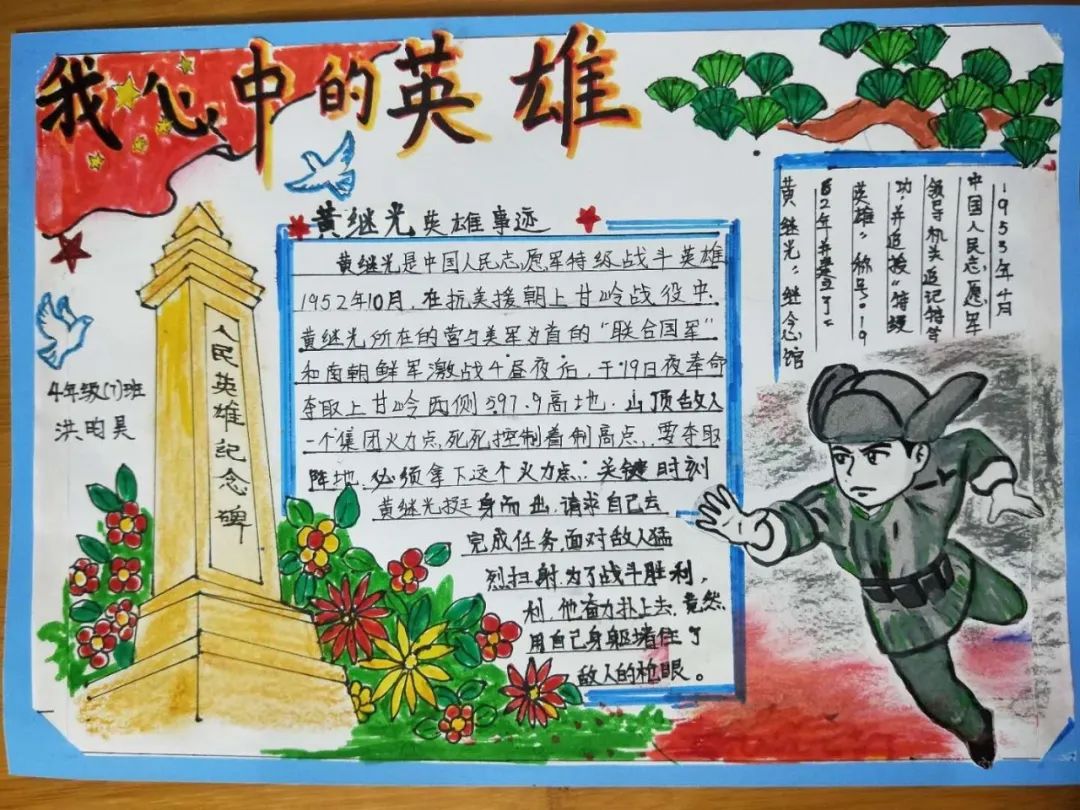 我心中的英雄
黄继光英雄事迹
黄继光是中国人民志愿军特级战斗英雄
1952年10月,在抗美援朝上甘岭战役中.
黄继光所在的营与美军为首的“联合国军”
和南朝鲜军激战4昼夜后,于19日夜奉命
夺取上甘岭西侧597.9高地.山顶敌人
一个集团火力点,死死控制着制高点,要夺取
阵地,必须拿下这个火力点;关键时刻
黄继光挺身而出,请求自己去
完成任务,面对敌人猛
烈扫射,为了战斗胜利,
利,他奋力扑上去,竟然
用自己身躯堵住了
敌人的枪眼。
1953年4月
中国人民志愿军
领导机关追记特等
功,并追授“特级
英雄”称号。19
62年并建立了“
黄继光”纪念馆
人民英雄记念碑
4年级(7)班
洪昀昊